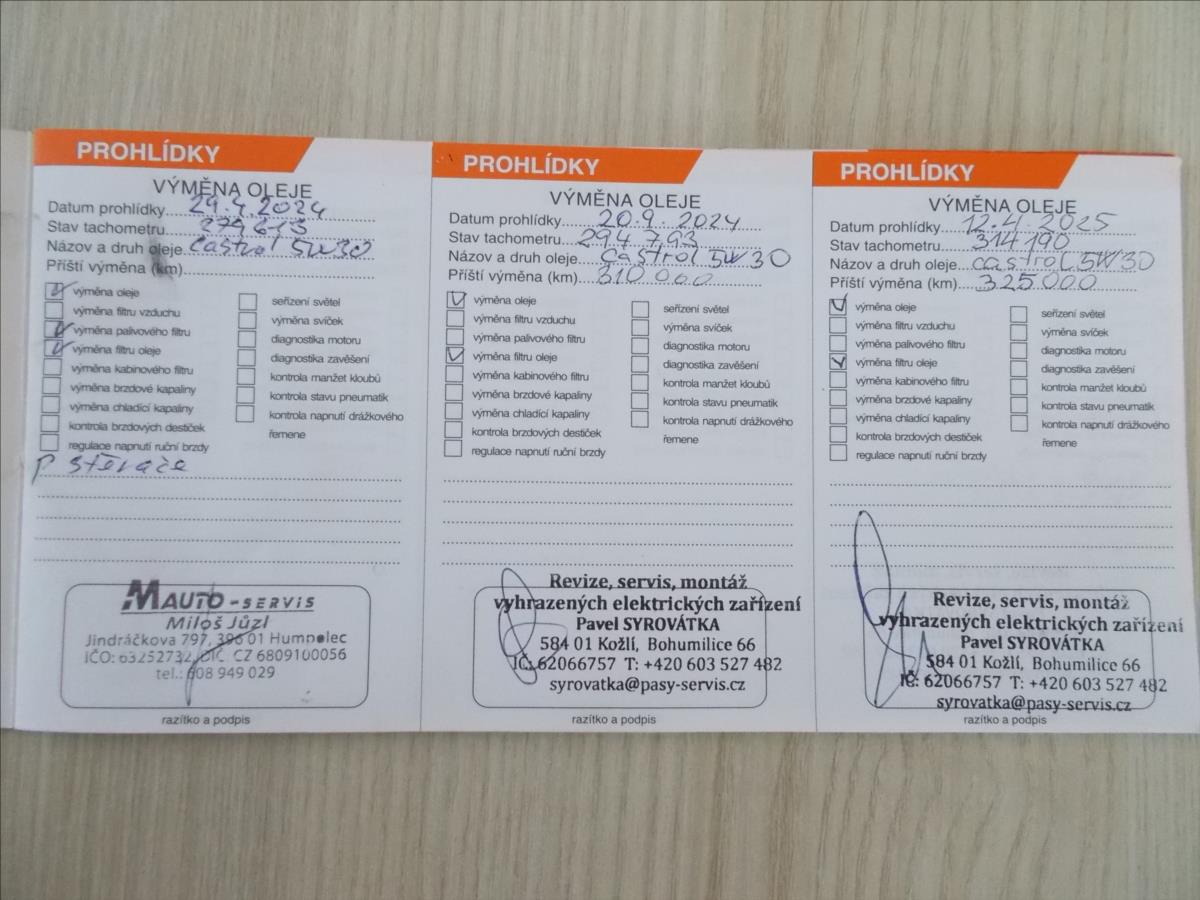 PROHLÍDKY
VÝMĚNA OLEJE
Datum prohlídky 29.4.2024
Stav tachometru 279613
Názov a druh oleje Castrol 5W30
Příští výměna (km)
výměna oleje
výměna filtru vzduchu
výměna palivového filtru
výměna filtru oleje
výměna kabinového filtru
výměna brzdové kapaliny
výměna chladící kapaliny
kontrola brzdových destiček
regulace napnutí ruční brzdy
seřízení světel
výměna svíček
diagnostika motoru
diagnostika zavěšení
kontrola manžet kloubů
kontrola stavu pneumatik
kontrola napnutí drážkového
řemene
P stěrače
MAUTO-SERVIS
Miloš Jůzl
Jindráčkova 797, 396 01 Humpolec
IČO: 63252732, DIČ: CZ 6809100056
tel.: 608 949 029
razítko a podpis
PROHLÍDKY
VÝMĚNA OLEJE
Datum prohlídky 20.9.2024
Stav tachometru 294.793
Názov a druh oleje Castrol 5W30
Příští výměna (km) 310.000
výměna oleje
výměna filtru vzduchu
výměna palivového filtru
výměna filtru oleje
výměna kabinového filtru
výměna brzdové kapaliny
výměna chladící kapaliny
kontrola brzdových destiček
regulace napnutí ruční brzdy
seřízení světel
výměna svíček
diagnostika motoru
diagnostika zavěšení
kontrola manžet kloubů
kontrola stavu pneumatik
kontrola napnutí drážkového
řemene
Revize, servis, montáž
vyhrazených elektrických zařízení
Pavel SYROVÁTKA
584 01 Kožlí, Bohumilice 66
IČ: 62066757 T: +420 603 527 482
syrovatka@pasy-servis.cz
razítko a podpis
PROHLÍDKY
VÝMĚNA OLEJE
Datum prohlídky 12.4.2025
Stav tachometru 314190
Názov a druh oleje castrol 5W30
Příští výměna (km) 325000
výměna oleje
výměna filtru vzduchu
výměna palivového filtru
výměna filtru oleje
výměna kabinového filtru
výměna brzdové kapaliny
výměna chladící kapaliny
kontrola brzdových destiček
regulace napnutí ruční brzdy
seřízení světel
výměna svíček
diagnostika motoru
diagnostika zavěšení
kontrola manžet kloubů
kontrola stavu pneumatik
kontrola napnutí drážkového
řemene
Revize, servis, montáž
vyhrazených elektrických zařízení
Pavel SYROVÁTKA
584 01 Kožlí, Bohumilice 66
IČ: 62066757 T: +420 603 527 482
syrovatka@pasy-servis.cz
razítko a podpis